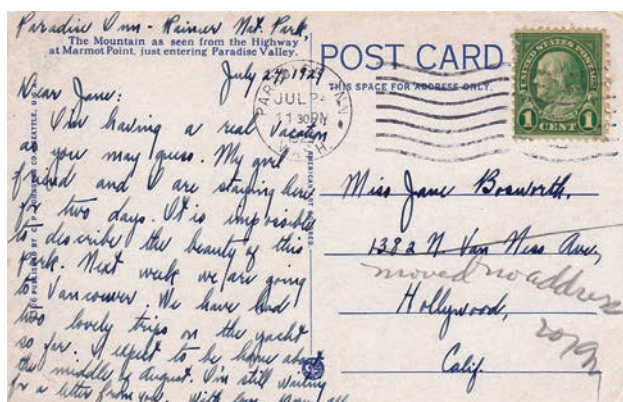 Paradise Inn - Rainier Nat. Park,
The Mountain as seen from the Highway
at Marmot Point, just entering Paradise Valley.
July 24, 1929
Dear Jane:
I'm having a real vacation
as you may guess. My girl
friend and I are staying here
for two days. It is impossible
to describe the beauty of this
Park. Next week we are going
to Vancouver. We have had
two lovely trips on the yacht
so far. I expect to be home about
the middle of August. I'm still waiting
for a letter from you. With love,
POST CARD
THIS SPACE FOR ADDRESS ONLY.
PARADISE INN
JUL 24
11 30 PM
WASH.
UNITED STATES POSTAGE
1 CENT 1
Miss Jane Bosworth,
1382 N. Van Ness Ave,
moved no address
Hollywood,
Calif.